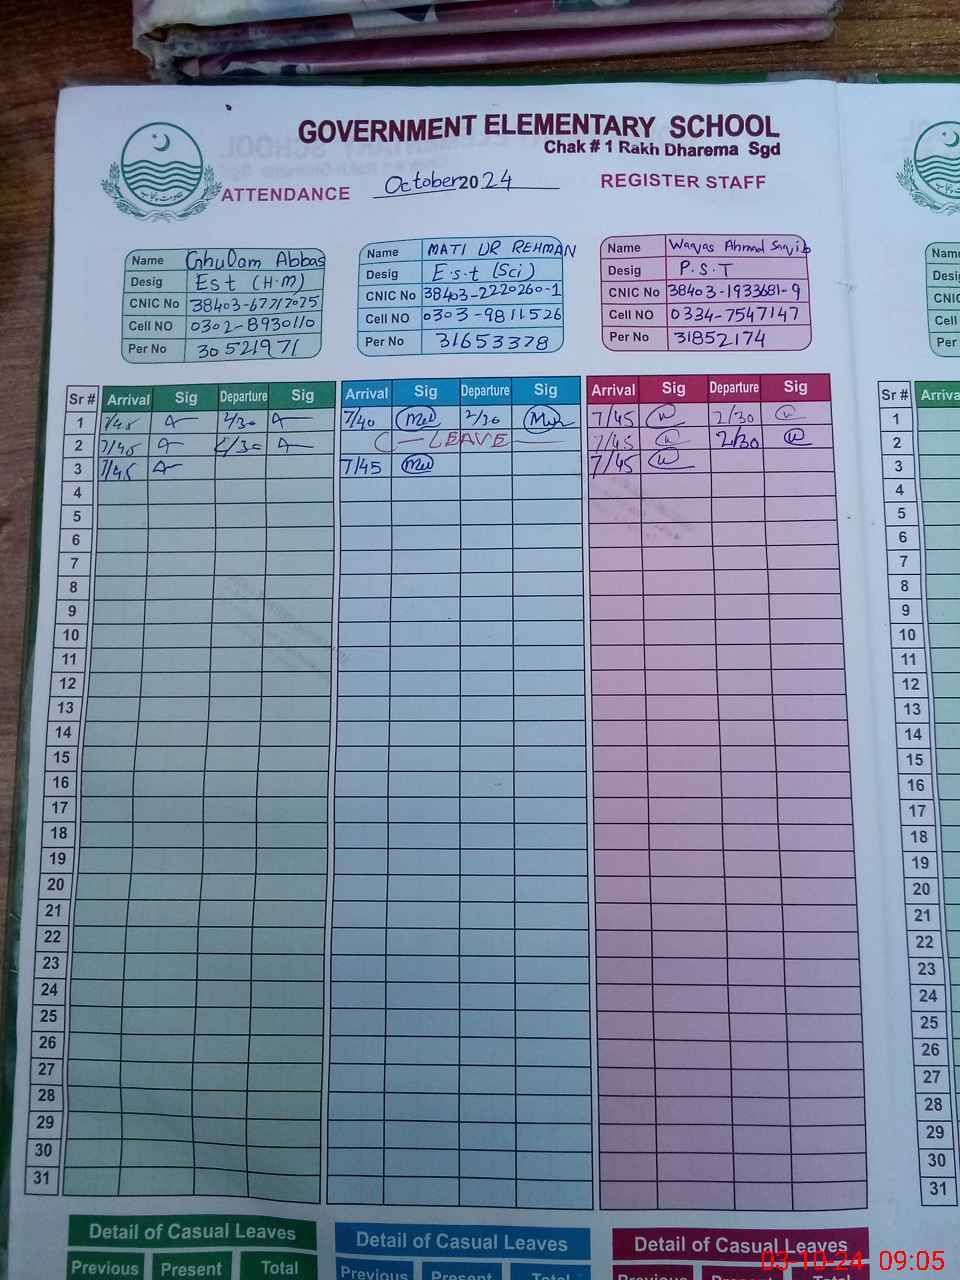 GOVERNMENT ELEMENTARY SCHOOL
Chak # 1 Rakh Dharema Sgd
ATTENDANCE October 2024 REGISTER STAFF
Name Ghulam Abbas
Desig Est (H.M)
CNIC No
Cell NO 0302-8930110
Per No 30521971
Name MATI UR REHMAN
Desig E.s.t (Sci)
CNIC No 38403-2220260-1
Cell NO 0303-9811526
Per No 31653378
Name Ahmad
Desig P.S.T
CNIC No 38403-1933681-9
Cell NO 0334-7547147
Per No 31852174
Name
Desig
CNIC
Cell
Per
Sr # Arrival Sig Departure Sig Arrival Sig Departure Sig Arrival Sig Departure Sig Sr # Arriva
1 7/45 2/30 7/40 2/30 7/45 2/30 1
2 7/45 2/30 LEAVE 7/45 2/30 2
3 7/45 7/45 7/45 3
4 4
5 5
6 6
7 7
8 8
9 9
10 10
11 11
12 12
13 13
14 14
15 15
16 16
17 17
18 18
19 19
20 20
21 21
22 22
23 23
24 24
25 25
26 26
27 27
28 28
29 29
30 30
31 31
Detail of Casual Leaves Detail of Casual Leaves Detail of Casual Leaves
Previous Present Total Previous Present Total
03-10-24 09:05